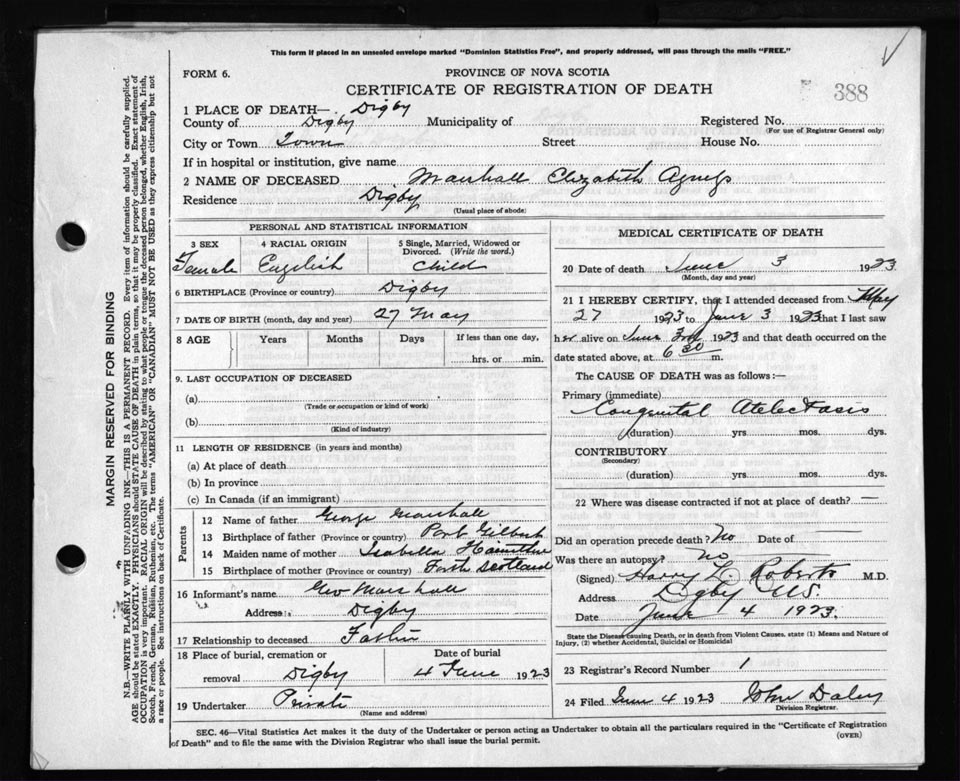 This form if placed in an unsealed envelope marked "Dominion Statistics Free", and properly addressed, will pass through the mails "FREE."
FORM 6.
PROVINCE OF NOVA SCOTIA
CERTIFICATE OF REGISTRATION OF DEATH
388
1 PLACE OF DEATH— Digby
County of Digby Municipality of Registered No.
(For use of Registrar General only)
City or Town Town Street House No.
If in hospital or institution, give name
2 NAME OF DECEASED Marshall Elizabeth Agness
Residence Digby
(Usual place of abode)
PERSONAL AND STATISTICAL INFORMATION
3 SEX 4 RACIAL ORIGIN 5 Single, Married, Widowed or Divorced. (Write the word.)
Female English Child
6 BIRTHPLACE (Province or country) Digby
7 DATE OF BIRTH (month, day and year) 27 May
8 AGE Years Months Days If less than one day,
hrs. or min.
9. LAST OCCUPATION OF DECEASED
(a)
(Trade or occupation or kind of work)
(b)
(Kind of industry)
11 LENGTH OF RESIDENCE (in years and months)
(a) At place of death
(b) In province
(c) In Canada (if an immigrant)
Parents
12 Name of father George Marshall
13 Birthplace of father (Province or country) Port Gilbert
14 Maiden name of mother Isabella
15 Birthplace of mother (Province or country) Scotland
16 Informant's name Geo Marshall
Address Digby
17 Relationship to deceased Father
18 Place of burial, cremation or removal Digby Date of burial 4 June 1923
19 Undertaker Private
(Name and address)
MEDICAL CERTIFICATE OF DEATH
20 Date of death June 3 1923
(Month, day and year)
21 I HEREBY CERTIFY, that I attended deceased from May
27 1923 to June 3 1923 that I last saw
her alive on June 3rd 1923 and that death occurred on the
date stated above, at 6 30 m.
The CAUSE OF DEATH was as follows:—
Primary (immediate)
Congenital Atelectasis
(duration) yrs. mos. dys.
CONTRIBUTORY
(Secondary)
(duration) yrs. mos. dys.
22 Where was disease contracted if not at place of death? —
Did an operation precede death? No Date of —
Was there an autopsy? No
(Signed) Harry L. Roberts M.D.
Address Digby N.S.
Date June 4 1923.
State the Disease causing Death, or in death from Violent Causes, state (1) Means and Nature of Injury, (2) whether Accidental, Suicidal or Homicidal
23 Registrar's Record Number 1
24 Filed June 4 1923 John Daley
Division Registrar.
SEC. 46—Vital Statistics Act makes it the duty of the Undertaker or person acting as Undertaker to obtain all the particulars required in the "Certificate of Registration
of Death" and to file the same with the Division Registrar who shall issue the burial permit.
(OVER)
MARGIN RESERVED FOR BINDING
N.B.—WRITE PLAINLY WITH UNFADING INK—THIS IS A PERMANENT RECORD. Every item of information should be carefully supplied.
AGE should be stated EXACTLY. PHYSICIANS should STATE CAUSE OF DEATH in plain terms, so that it may be properly classified. Exact statement of
OCCUPATION is very important. RACIAL ORIGIN will be described by stating to what people or tongue the deceased person belonged, whether English, Irish,
Scotch, French, German, Russian, Ruthenian, etc. The terms "AMERICAN" OR "CANADIAN" MUST NOT BE USED as they express citizenship but not
a race or people. See instructions on back of Certificate.